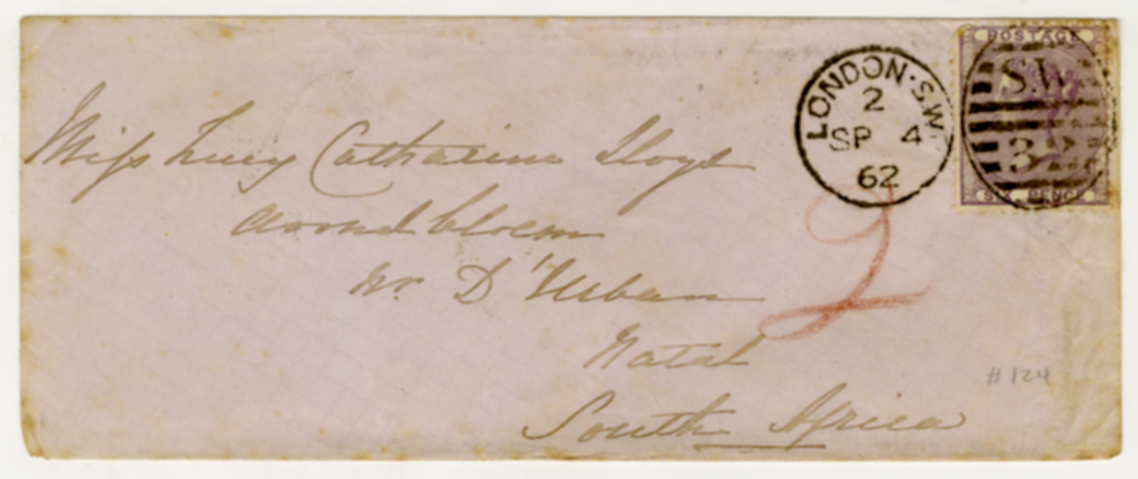 POSTAGE
S.W
32
SIX PENCE
LONDON·S.W
2
SP 4
62
Miss Lucy Catharine Lloyd
Avondbloem
nr. D'Urban
Natal
South Africa
2
#124